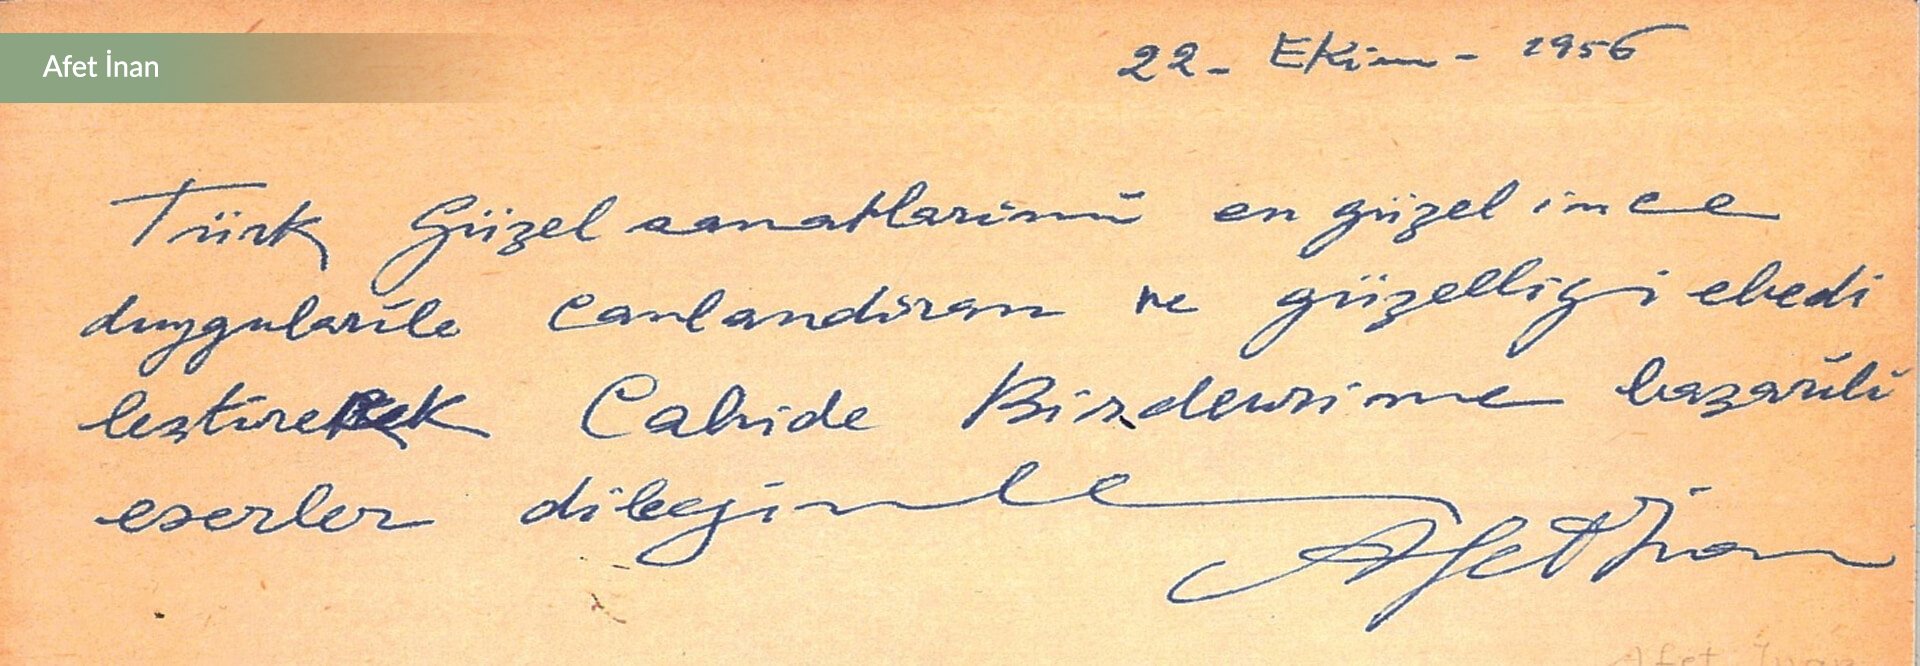 Afet İnan
22 - Ekim - 1956
Türk Güzel sanatlarını en güzel ince
duygularile canlandıran ve güzelliği ebedi
leştirerek Cahide
başarılı
eserler dileğimle
Afet İnan
Afet İnan